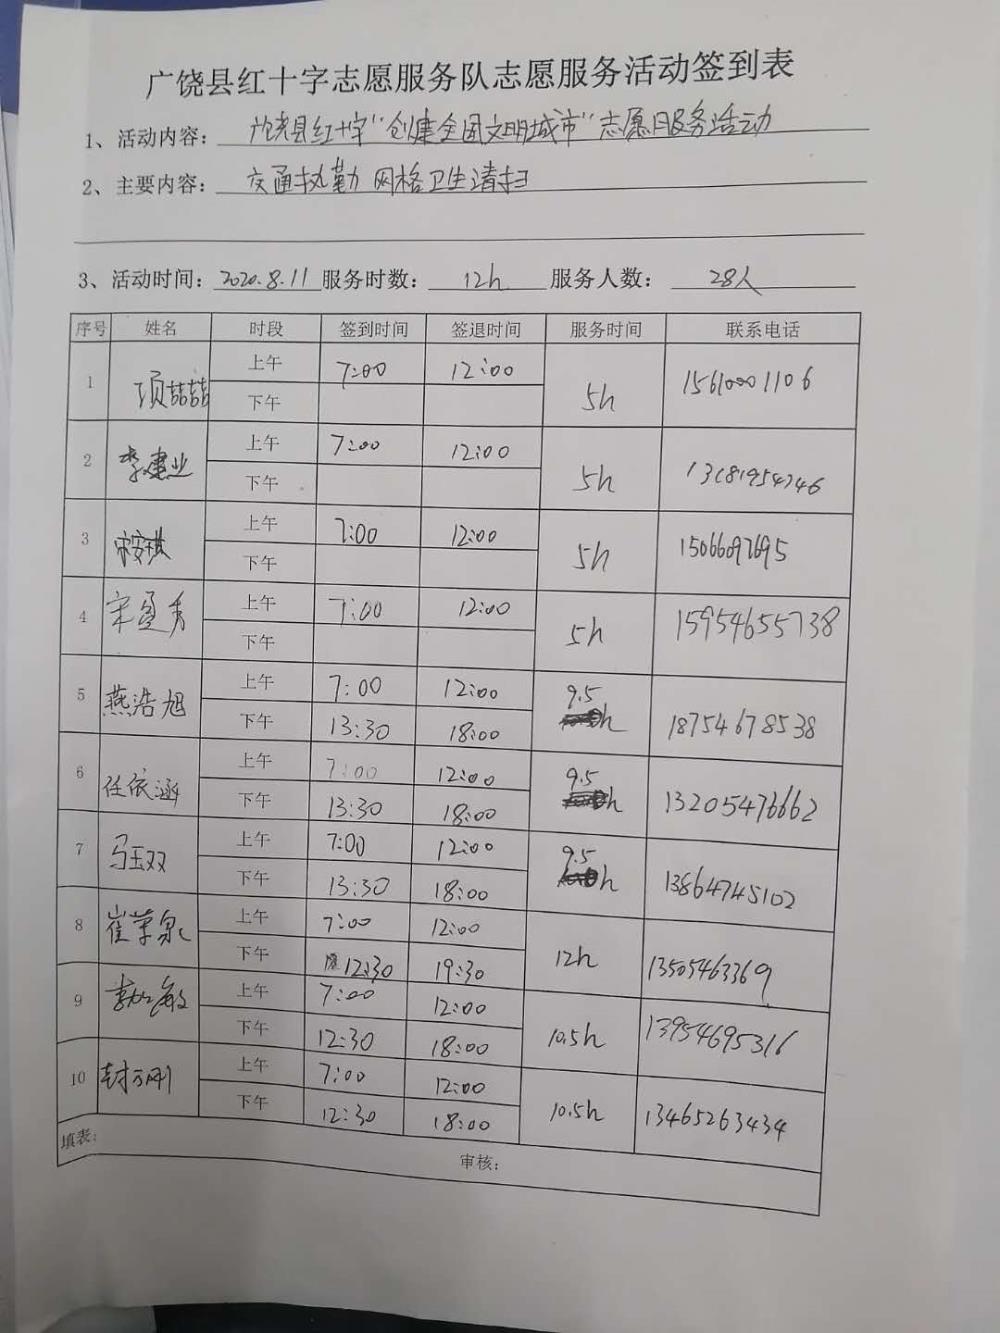 广饶县红十字志愿服务队志愿服务活动签到表
1、活动内容：广饶县红十字"创建全国文明城市"志愿服务活动
2、主要内容：交通执勤 网格卫生清扫
3、活动时间：2020.8.11 服务时数：12h 服务人数：28人
序号 姓名 时段 签到时间 签退时间 服务时间 联系电话
1 项喆喆 上午 7:00 12:00 5h 15610001106
下午
2 李建业 上午 7:00 12:00 5h
下午
3 宋安琪 上午 7:00 12:00 5h 15066092695
下午
4 宋盈秀 上午 7:00 12:00 5h 15954655738
下午
5 燕浩旭 上午 7:00 12:00 9.5h 18754678538
下午 13:30 18:00
6 任依涵 上午 7:00 12:00 9.5h 13205476662
下午 13:30 18:00
7 马玉双 上午 7:00 12:00 9.5h 13864745102
下午 13:30 18:00
8 崔箪泉 上午 7:00 12:00 12h 13505463369
下午 12:30 19:30
9 上午 7:00 12:00 10.5h 13954695316
下午 12:30 18:00
10 封万刚 上午 7:00 12:00 10.5h 13465263434
下午 12:30 18:00
填表：
审核：